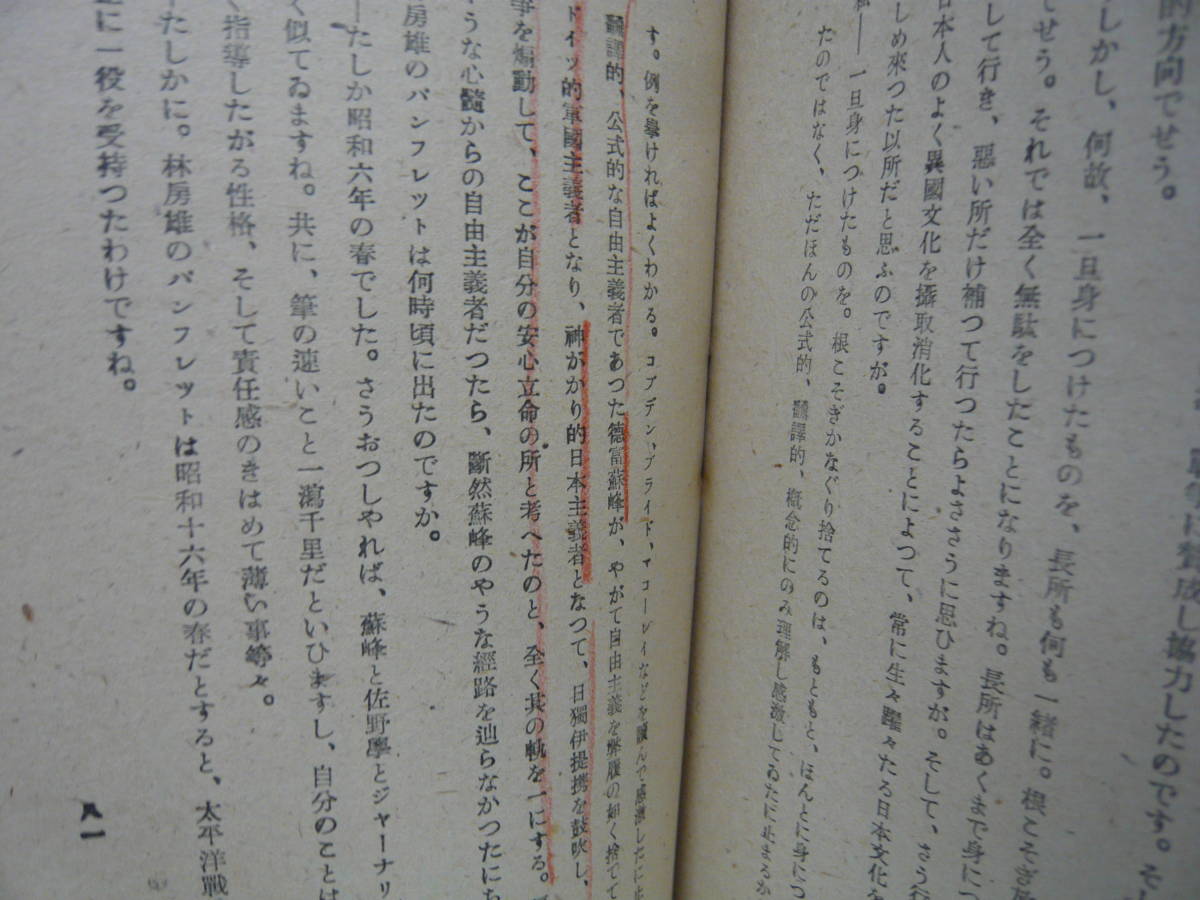 的方向でせう。
戰爭に賛成し協力したのです。そ
しかし、何故、一旦身につけたものを、長所も何も一緒に。根こそぎ
でせう。それでは全く無駄をしたことになりますね。長所はあくまで身につ
して行き、惡い所だけ補つて行つたらよささうに思ひますが。そして、さう行
日本人のよく異國文化を攝取消化することによつて、常に生々躍々たる日本文化を
しめ來つた以所だと思ふのですが。
私―― 一旦身につけたものを。根こそぎかなぐり捨てるのは、もともと、ほんとに身につ
たのではなく、ただほんの公式的、飜譯的、概念的にのみ理解し感激してゐたに止まるか
す。例を擧ければよくわかる。コブデン、ブライド、マコーレイなどを讀んで感激したに止
飜譯的、公式的な自由主義者であつた德富蘇峰が、やがて自由主義を弊履の如く捨てて
ドイツ的軍國主義者となり、神がかり的日本主義者となつて、日獨伊提携を鼓吹し、
爭を煽動して、ここが自分の安心立命の所と考へたのと、全く其の軌を一にする。
やうな心髓からの自由主義者だつたら、斷然蘇峰のやうな經路を辿らなかつたにち
房雄のパンフレットは何時頃に出たのですか。
――たしか昭和六年の春でした。さうおつしやれば、蘇峰と佐野學とジャーナリ
く似てゐますね。共に、筆の速いこと一瀉千里だといひますし、自分のことは
く指導したがる性格、そして責任感のきはめて薄い事等々。
たしかに。林房雄のパンフレットは昭和十六年の春だとすると、太平洋戰
に一役を受持つたわけですね。
八一